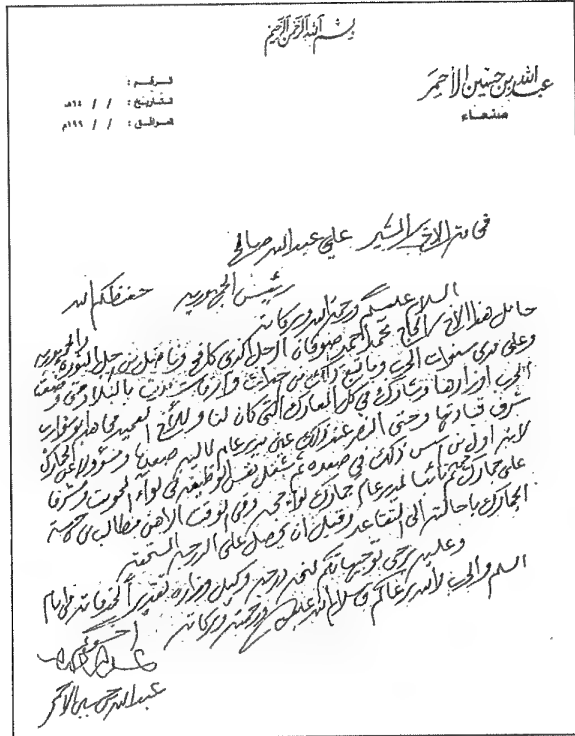 بسم الله الرحمن الرحيم
عبد الله بن حسين الأحمر
صنعاء
الرقم :
التاريخ : / / ١٤هـ
الموافق : / / ١٩٩م
فخامة الاخ المشير علي عبدالله صالح
رئيس الجمهورية حفظكم الله
السلام عليكم ورحمة الله وبركاته
حامل هذا الاخ الحاج محمد احمد الرجل الذي كافح وناضل من اجل الثورة والجمهورية
وعلى مدى سنوات الحرب وما من احداث
الحرب اوزارها وشارك في كل المعارك التي كان لنا وللأخ العميد مجاهد ابو شوارب
شرف قيادتها وحتى النصر عند ذلك عين مدير عام لمالية صعدة ومسؤولا عن الجمارك
لانه اول من اسس ذلك في صعده ثم شغل نفس الوظيفة في لواء المحويت ومشرفا
على جمارك نائبا لمدير عام جمارك لواء حجه وفي الوقت الاهن مطالب من
الجمارك باحالته الى التقاعد وقبل ان يحصل على الدرجة المستحقه
وعليه نرجى توجيهاتكم لمنحه درجة وكيل وزارة تقديرا لخدماته في ايام
السلم والحرب والله يرعاكم والسلام عليكم ورحمة الله وبركاته
اخوكم
عبدالله بن حسين الاحمر